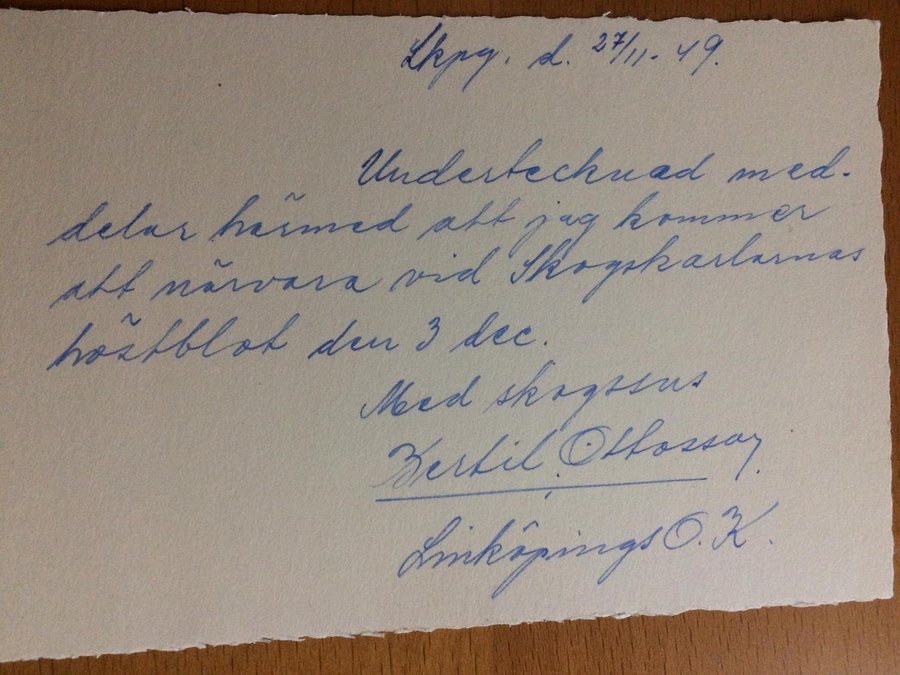 Lkpg. d. 27/11-49.
Undertecknad med-
delar härmed att jag kommer
att närvara vid Skogskarlarnas
höstblot den 3 dec.
Med skogssus
Bertil Ottosson
Linköpings O.K.